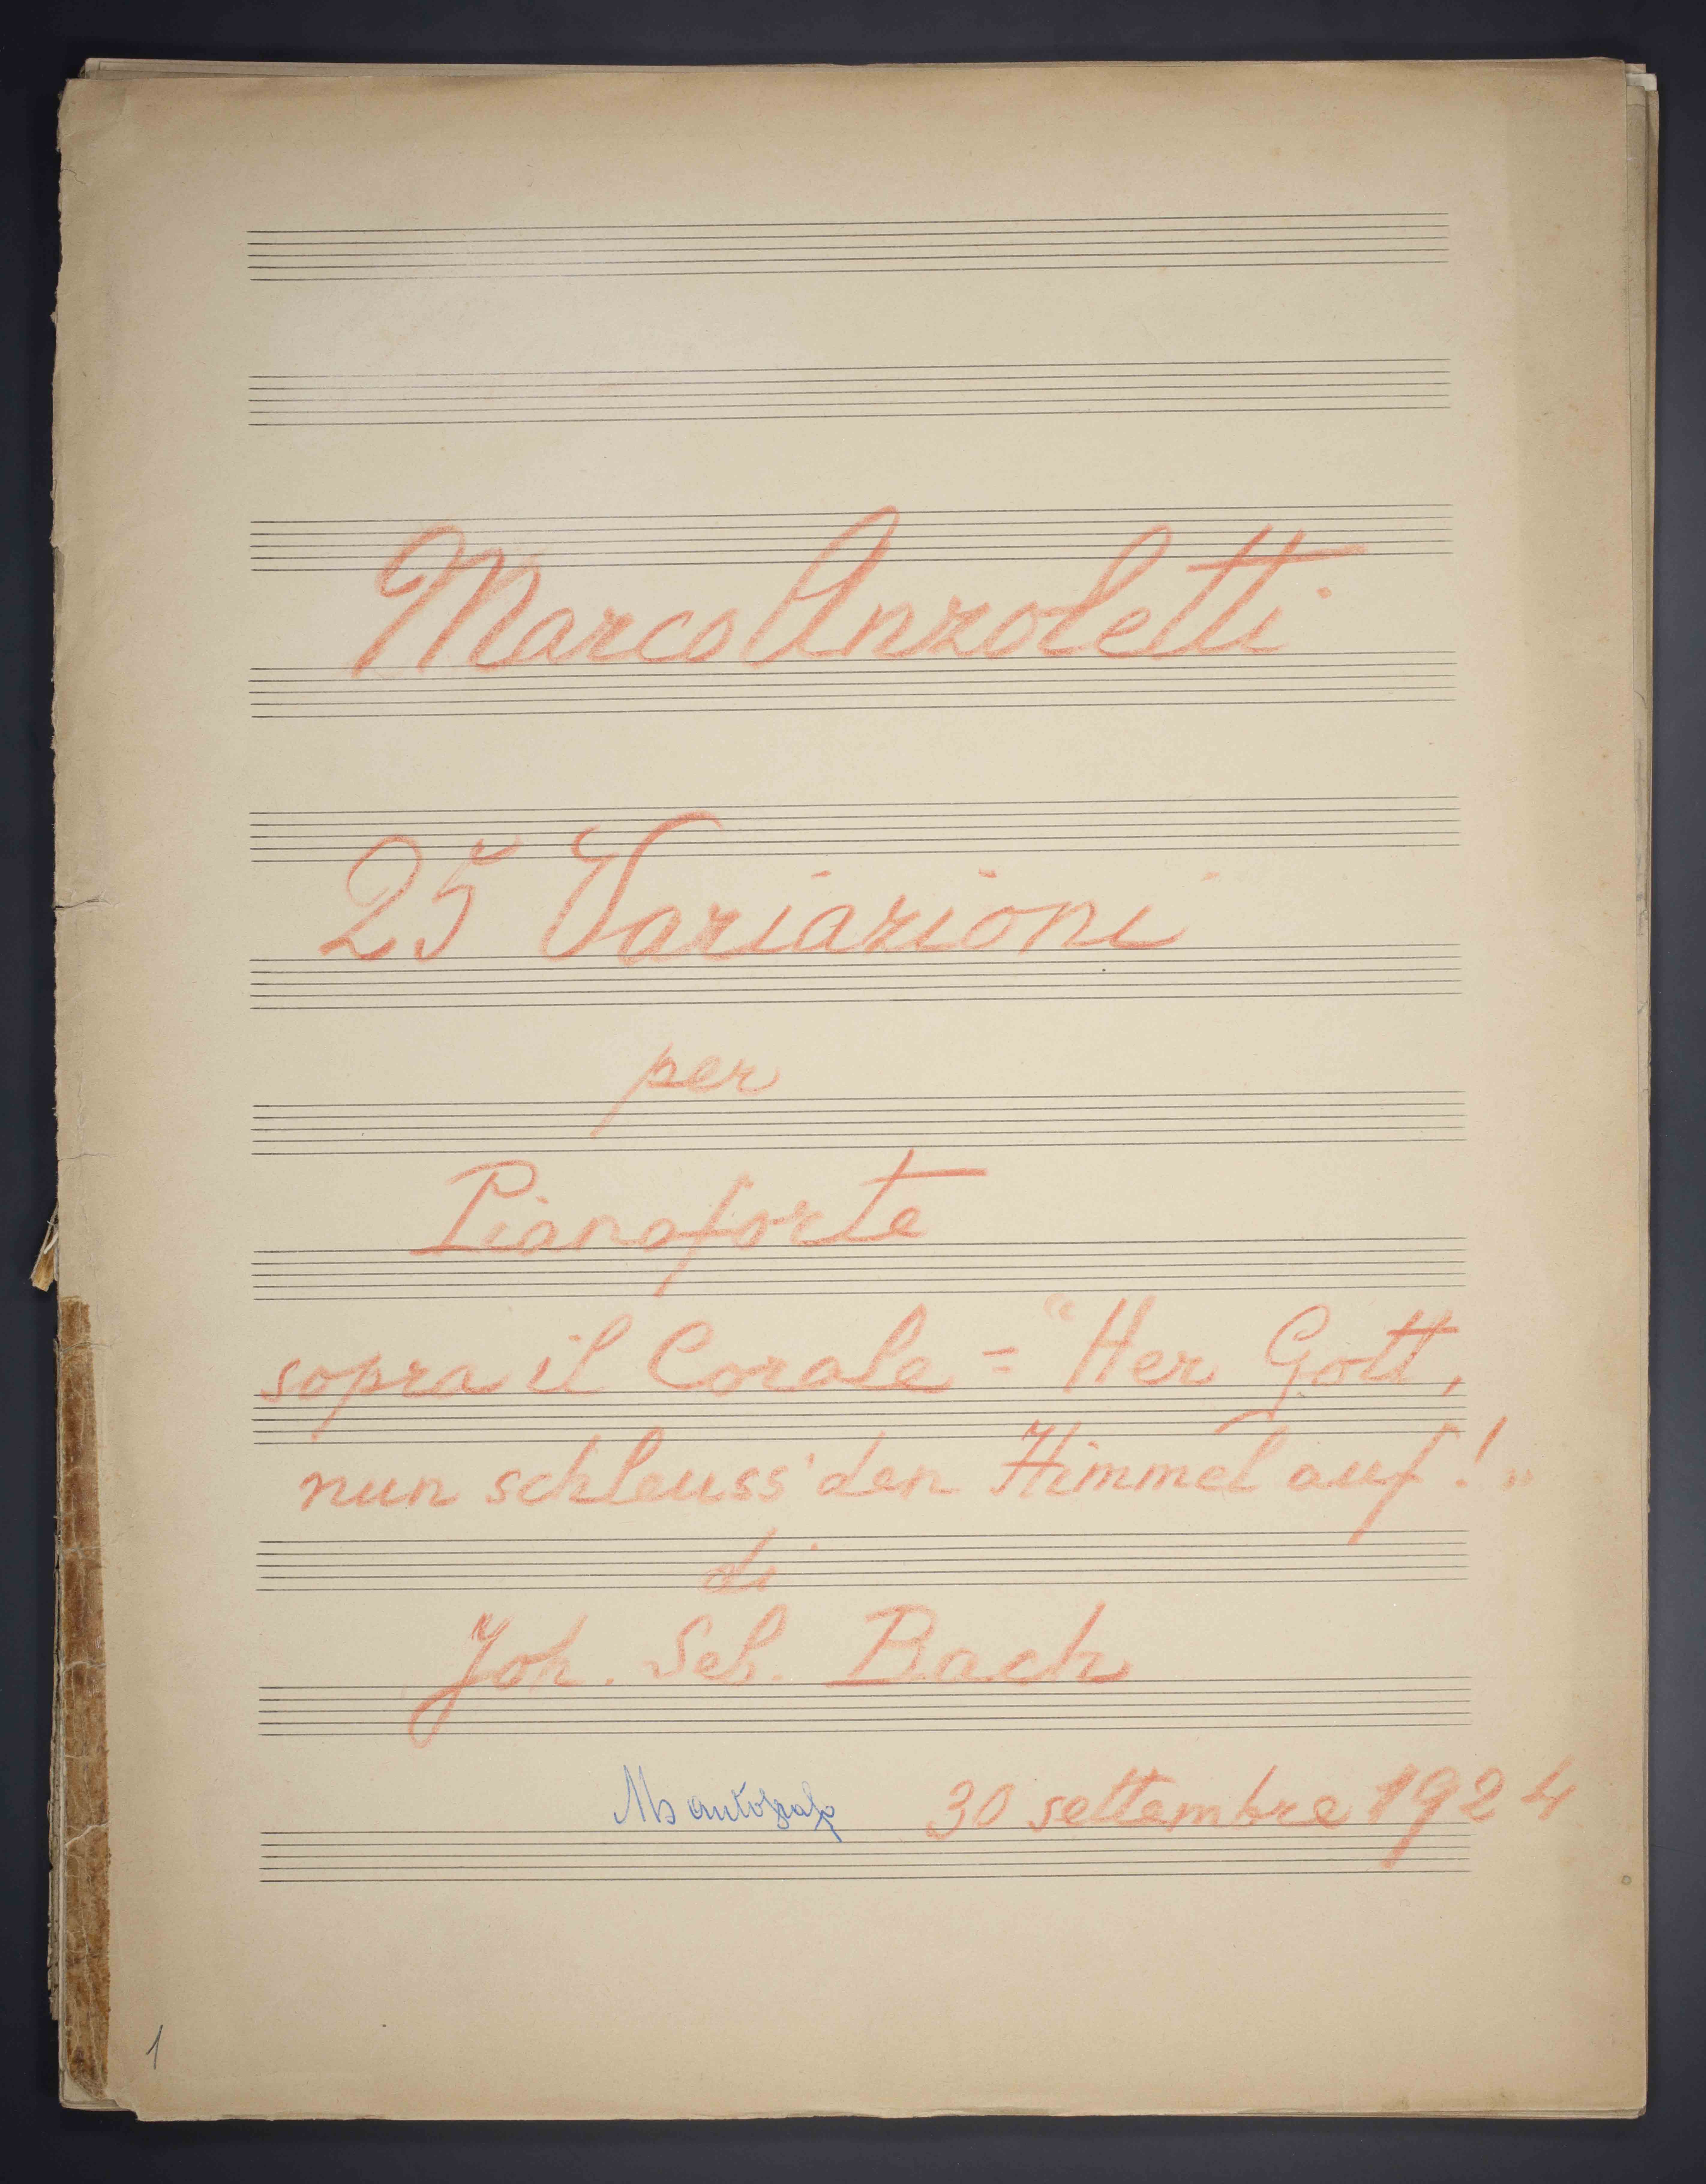 Marco Anzoletti
25 Variazioni
per
Pianoforte
sopra il Corale = "Her Gott,
nun schleuss' den Himmel auf!"
di
Joh. Seb. Bach
Ms autografo 30 settembre 1924
1